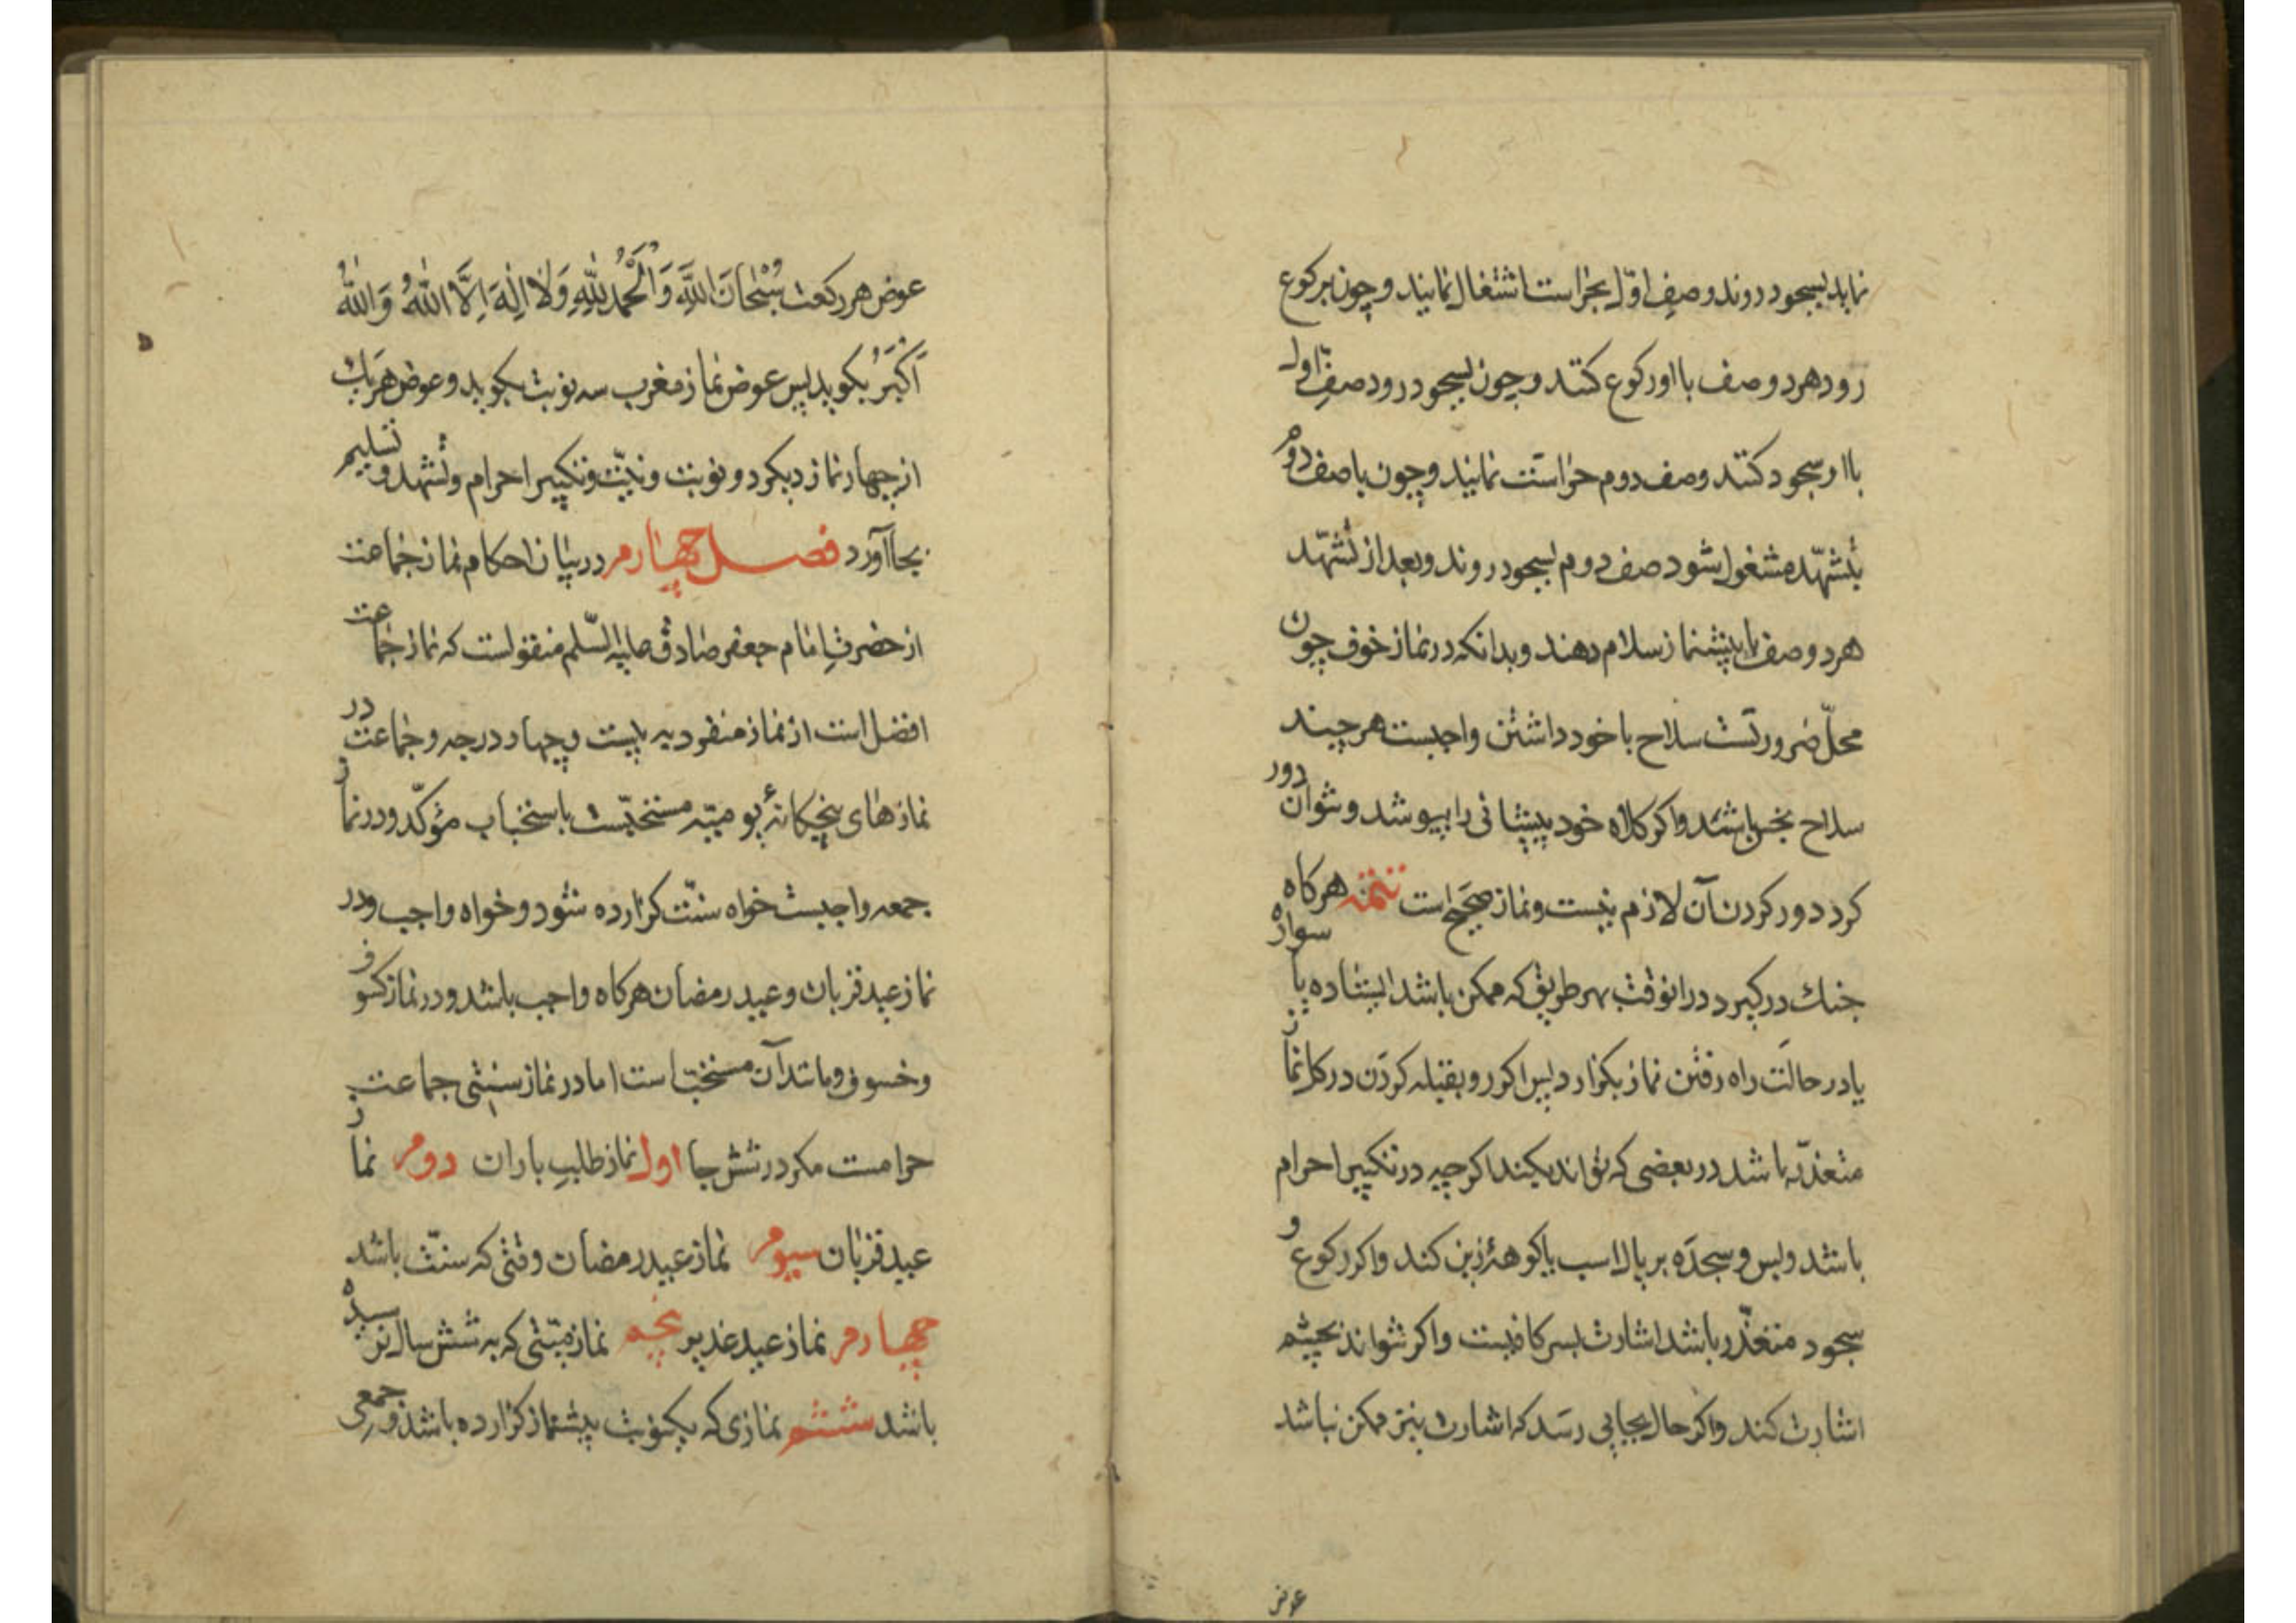 نماید بسجود روند و صف اوّل بحراست اشتغال نمایند و چون برکوع
رود هر دو صف با او رکوع کنند و چون بسجود رود صف اوّل
با او سجود کنند و صف دوم حراست نمایند و چون با صف دوم
بتشهّد مشغول شود صف دوم بسجود روند و بعد از تشهّد
هر دو صف با پیشنماز سلام دهند و بدانکه در نماز خوف چون
محلّ ضرورتست سلاح با خود داشتن واجبست هر چند
سلاح نجس باشد و اکر کلاه خود پیشانی را بپوشد و نتوان دور
کرد دور کردن آن لازم نیست و نماز صحیح است تتمّه هرکاه
جنك در کیرد در انوقت بهر طریق که ممکن باشد ایستاده یا سواره
یا در حالت راه رفتن نماز بکزارد پس اکر رو بقبله کردن در کل نماز
متعذّر باشد در بعضی که تواند بکند اکرچه در تکبیر احرام
باشد و بس و سجده بر یال اسب یا کوههٔ زین کند و اکر رکوع و
سجود متعذّر باشد اشارت بسر کافیست و اکر نتواند بچشم
اشارت کند و اکر حال بجایی رسد که اشارت نیز ممکن نباشد
عوض
عوض هر رکعت سُبْحَانَ اللّٰهِ وَالْحَمْدُ لِلّٰهِ وَلَا اِلٰهَ اِلَّا اللّٰهُ وَاللّٰهُ
اَکْبَرُ بکوید پس عوض نماز مغرب سه نوبت بکوید و عوض هر یك
از چهار نماز دیکر دو نوبت و نیّت و تکبیر احرام و تشهد و تسلیم
بجا آورد فصل چهارم در بیان احکام نماز جماعت
از حضرت امام جعفر صادق علیه السّلم منقولست که نماز جماعت
افضل است از نماز منفرد به بیست و چهار درجه و جماعت در
نمازهای پنجکانهٔ یومیّه مستحبّست باستحباب مؤکّد و در نماز
جمعه واجبست خواه سنّت کزارده شود و خواه واجب و در
نماز عید قربان و عید رمضان هرکاه واجب باشد و در نماز کسوف
و خسوف و مانند آن مستحبّ است اما در نماز سنتی جماعت
حرامست مکر در شش جا اول نماز طلب باران دوم نماز
عید قربان سیوم نماز عید رمضان وقتی که سنّت باشد
چهارم نماز عید غدیر پنجم نماز میّتی که به شش سال نرسیده
باشد ششم نمازی که یکنوبت پیشنماز کزارده باشد و جمعی